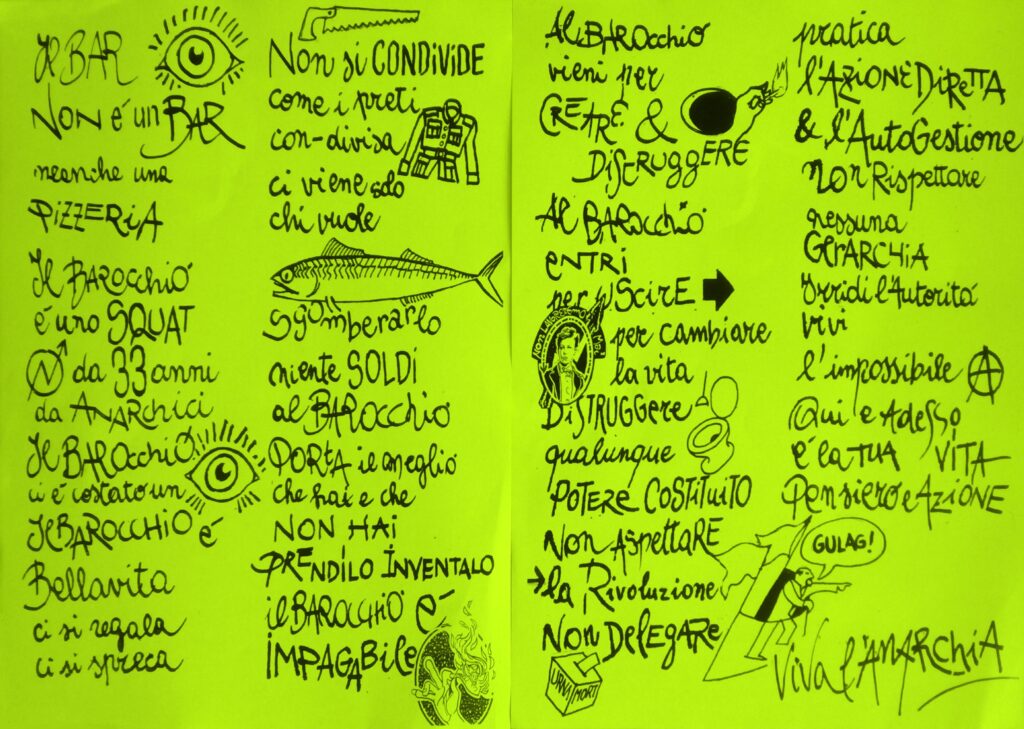 Il BAR
NON é un BAR
neanche una
PIZZERIA
Il BAROCCHIO
é uno SQUAT
da 33 anni
da ANARCHICI
Il BAROCCHIO
ci é costato un
Il BAROCCHIO é
Bellavita
ci si regala
ci si spreca
NON si CONDIVIDE
come i preti
con-divisa
ci viene solo
chi vuole
sgomberarlo
niente SOLDI
al BAROCCHIO
PORTA il meglio
che hai e che
NON HAI
PRENDILO INVENTALO
il BAROCCHIO é
IMPAGABILE
Al BAROCCHIO
vieni per
CREARE &
DISTRUGGERE
Al BAROCCHIO
ENTRI
per USCIRE
NON LAVOREREMO MAI
per cambiare
la vita
DISTRUGGERE
qualunque
POTERE COSTITUITO
NON ASPETTARE
la Rivoluzione
NON DELEGARE
URNA
MORTI
pratica
l'AZIONE DIRETTA
& l'AutoGestione
non Rispettare
nessuna
GERARCHIA
Irridi l'Autoritá
vivi
l'impossibile
Qui e Adesso
é la TUA VITA
Pensiero e AZIONE
GULAG!
Viva l'ANARCHIA